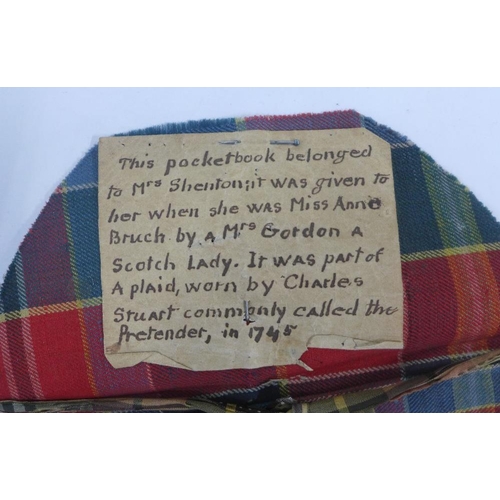 This pocketbook belonged
to Mrs Shenton; it was given to
her when she was Miss Anne
Bruch by a Mrs Gordon a
Scotch Lady. It was part of
a plaid, worn by Charles
Stuart commonly called the
Pretender, in 1745